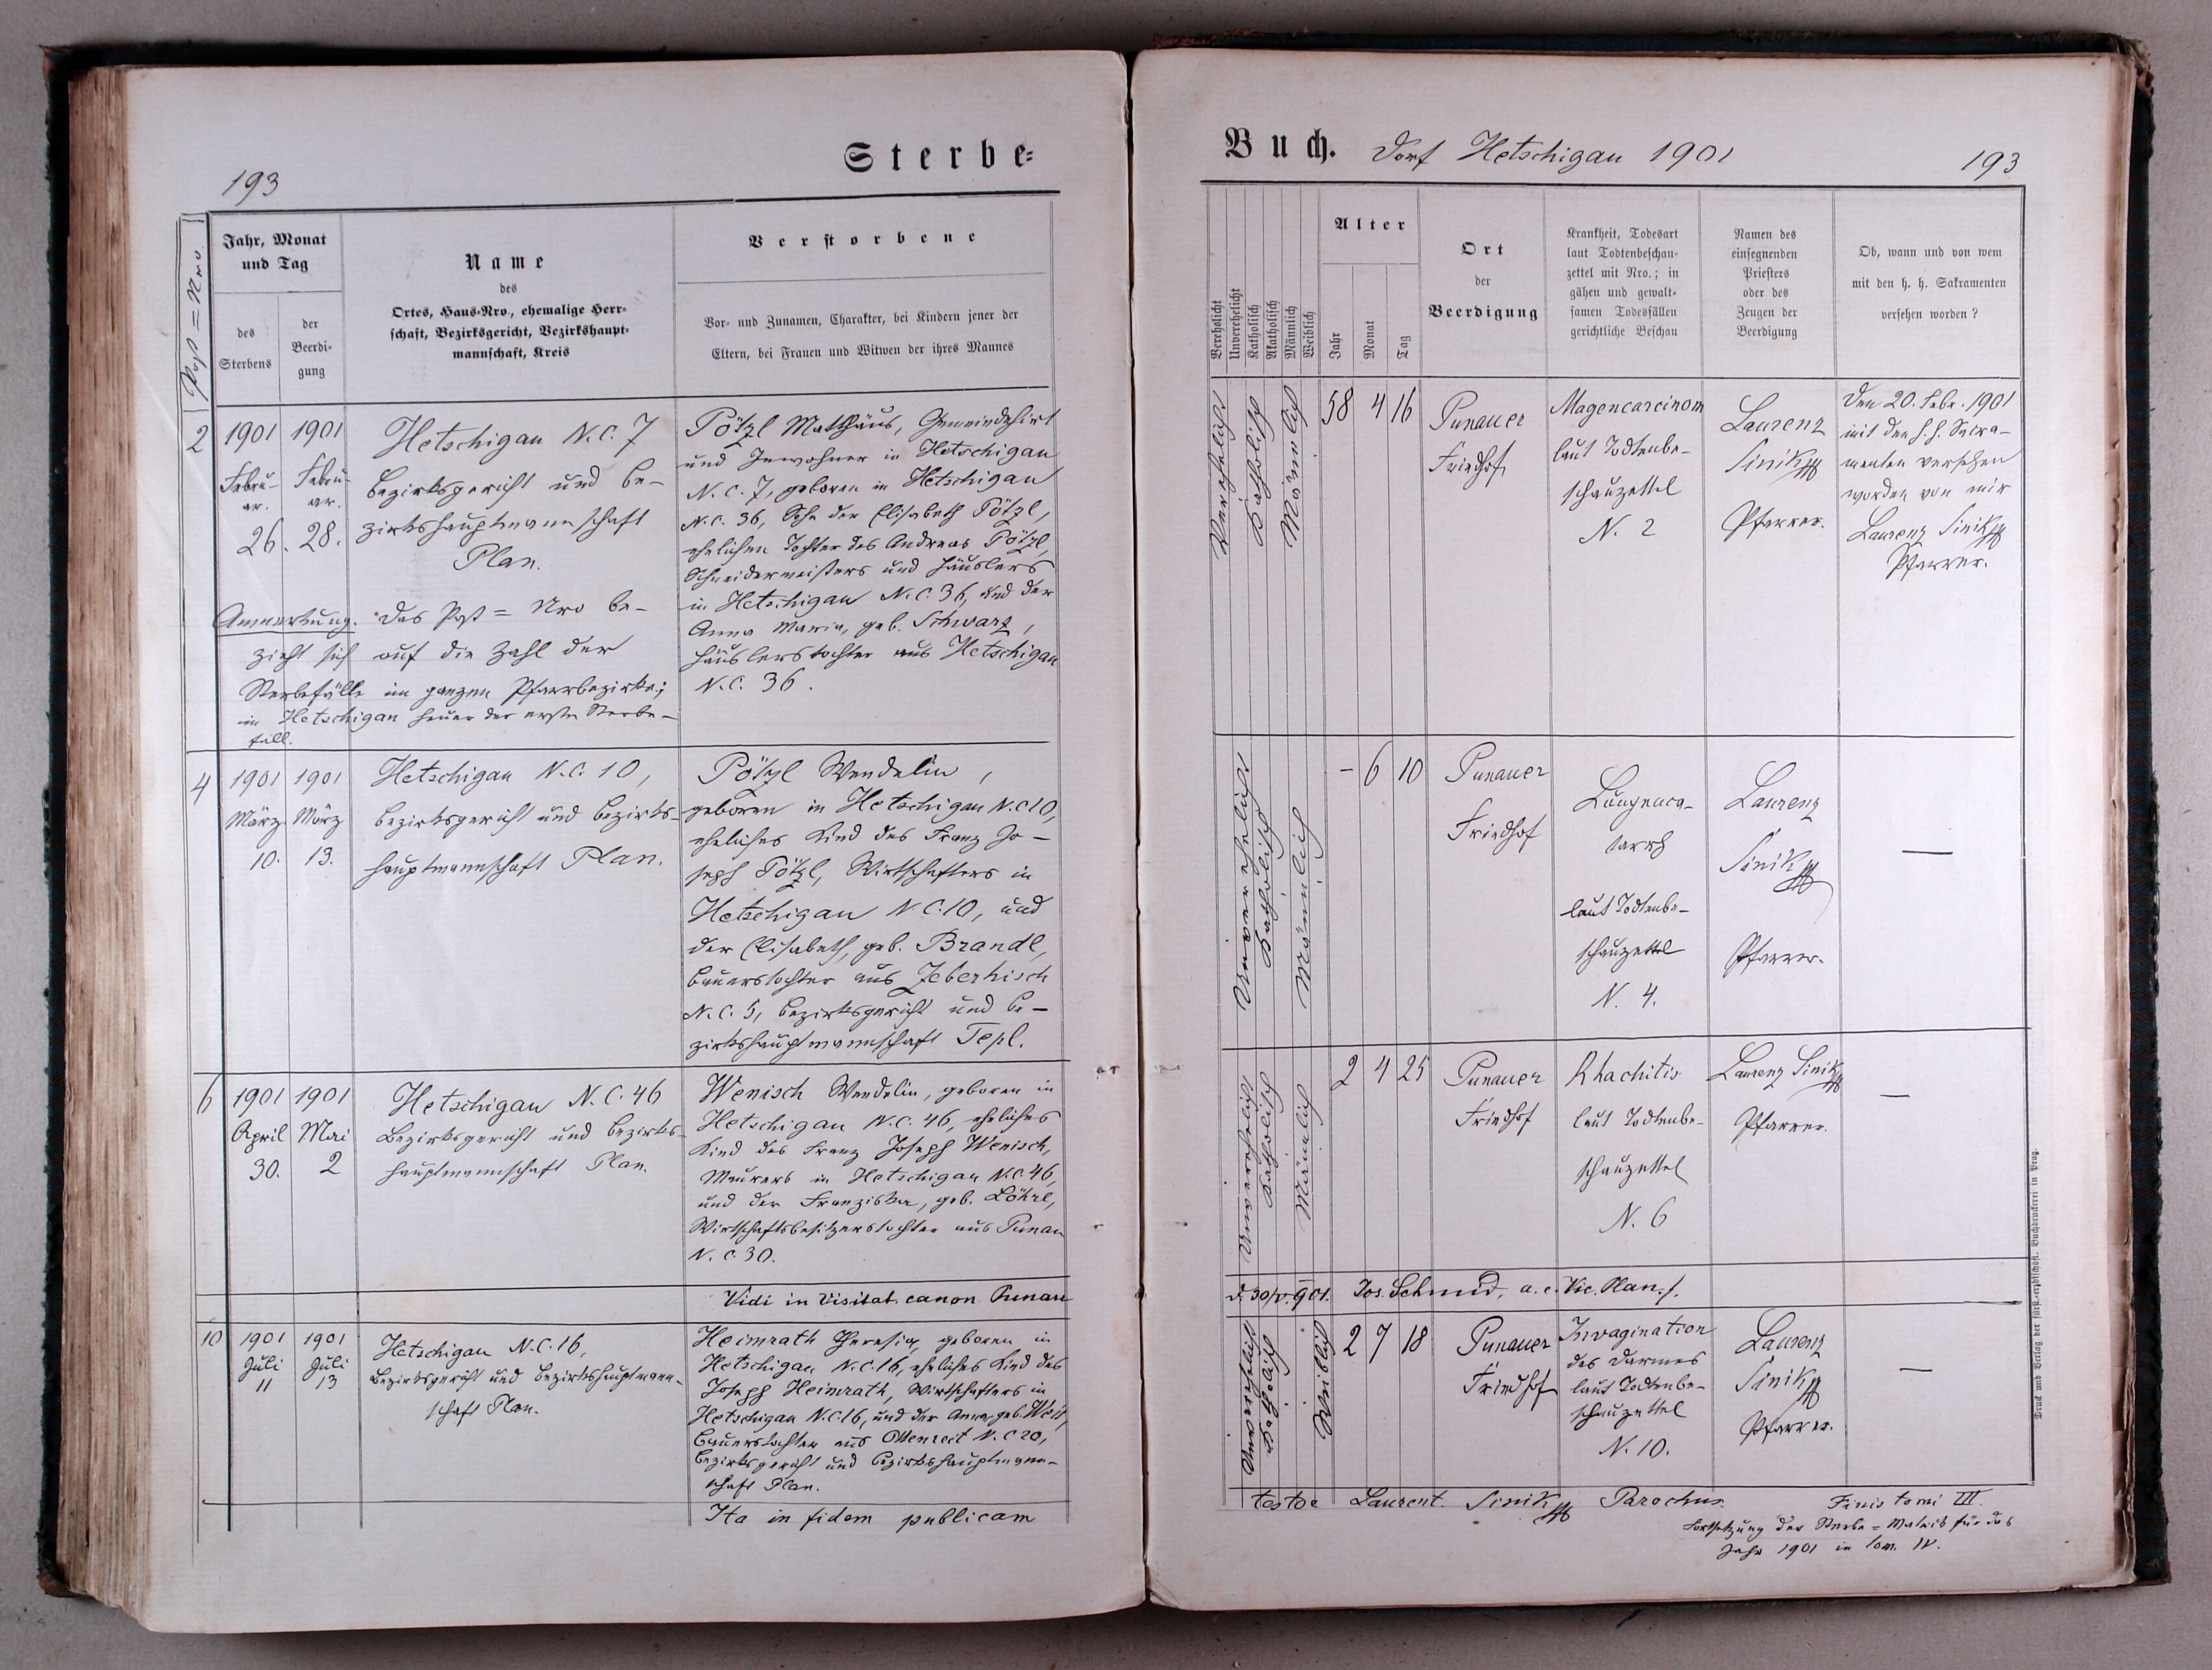 193
Sterbe-
Post=Nro.
Jahr, Monat
und Tag
des
Sterbens
der
Beerdi-
gung
Name
des
Ortes, Haus-Nro., ehemalige Herr-
schaft, Bezirksgericht, Bezirkshaupt-
mannschaft, Kreis
Verstorbene
Vor- und Zunamen, Charakter, bei Kindern jener der
Eltern, bei Frauen und Witwen der ihres Mannes
2
1901
Febru-
ar.
26.
1901
Febru-
ar.
28.
Hetschigau N.C. 7
Bezirksgericht und Be-
zirkshauptmannschaft
Plan.
Anmerkung. Das Post=Nro be-
zieht sich auf die Zahl der
Sterbefälle im ganzen Pfarrbezirke;
in Hetschigau heuer der erste Sterbe-
fall.
Pötzl Matthäus, Gemeindehirt
und Inwohner in Hetschigau
N.C. 7, geboren in Hetschigau
N.C. 36, Sohn der Elisabeth Pötzl,
ehelichen Tochter des Andreas Pötzl,
Schneidermeisters und Häuslers
in Hetschigau N.C. 36, und der
Anna Maria, geb. Schwarz,
Häuslerstochter aus Hetschigau
N.C. 36.
4
1901
März
10.
1901
März
13.
Hetschigau N.C. 10,
Bezirksgericht und Bezirks-
hauptmannschaft Plan.
Pötzl Wendelin,
geboren in Hetschigau N.C 10,
eheliches Kind des Franz Jo-
seph Pötzl, Wirtschafters in
Hetschigau N.C. 10, und
der Elisabeth, geb. Brandl,
Bauerstochter aus Zeberhisch
N.C. 5, Bezirksgericht und Be-
zirkshauptmannschaft Tepl.
6
1901
April
30.
1901
Mai
2
Hetschigau N.C. 46
Bezirksgericht und Bezirks-
hauptmannschaft Plan.
Wenisch Wendelin, geboren in
Hetschigau N.C. 46, eheliches
Kind des Franz Joseph Wenisch,
Maurers in Hetschigau N.C. 46,
und der Franziska, geb. Löhrl,
Wirtschaftsbesitzerstochter aus Punau
N.C. 30.
Vidi in visitat. canon Punau
10
1901
Juli
11
1901
Juli
13
Hetschigau N.C. 16,
Bezirksgericht und Bezirkshauptmann-
schaft Plan.
Heimrath Theresia, geboren in
Hetschigau N.C. 16, eheliches Kind des
Joseph Heimrath, Wirtschafters in
Hetschigau N.C. 16, und der Anna, geb.
Bauerstochter aus Ottenreit N.C 20,
Bezirksgericht und Bezirkshauptmann-
schaft Plan.
Ita in fidem publicam
Buch. Dorf Hetschigau 1901
193
Verehelicht
Unverehelicht
Katholisch
Akatholisch
Männlich
Weiblich
Alter
Jahr
Monat
Tag
Ort
der
Beerdigung
Krankheit, Todesart
laut Todtenbeschau-
zettel mit Nro.; in
gähen und gewalt-
samen Todesfällen
gerichtliche Beschau
Namen des
einsegnenden
Priesters
oder des
Zeugen der
Beerdigung
Ob, wann und von wem
mit den h. h. Sakramenten
versehen worden?
Verehelicht
Katholisch
Männlich
58 4 16
Punauer
Friedhof
Magencarcinom
laut Todtenbe-
schauzettel
N. 2
Laurenz
Sinik
Pfarrer.
Den 20. Febr. 1901
mit den h. h. Sacra-
menten versehen
worden von mir
Laurenz Sinik
Pfarrer.
Unverehelicht
Katholisch
Männlich
- 6 10
Punauer
Friedhof
Lungenca-
tarrh
laut Todtenbe-
schauzettel
N. 4.
Laurenz
Sinik
Pfarrer.
—
Unverehelicht
Katholisch
Männlich
2 4 25
Punauer
Friedhof
Rhachitis
laut Todtenbe-
schauzettel
N. 6
Laurenz Sinik
Pfarrer.
—
d. 30/V. 901. Jos. Schmid, a.e. Vic. Plan.
Unverehelicht
Katholisch
Weiblich
2 7 18
Punauer
Friedhof
Invagination
des Darmes
laut Todtenbe-
schauzettel
N. 10.
Laurenz
Sinik
Pfarrer.
—
teste Laurent. Sinik Parochus.
Finis tomi III.
Fortsetzung der Sterbe=Matrik für das
Jahr 1901 in tom. IV.
Druck und Verlag der fürst.-erzbischöfl. Buchdruckerei in Prag.